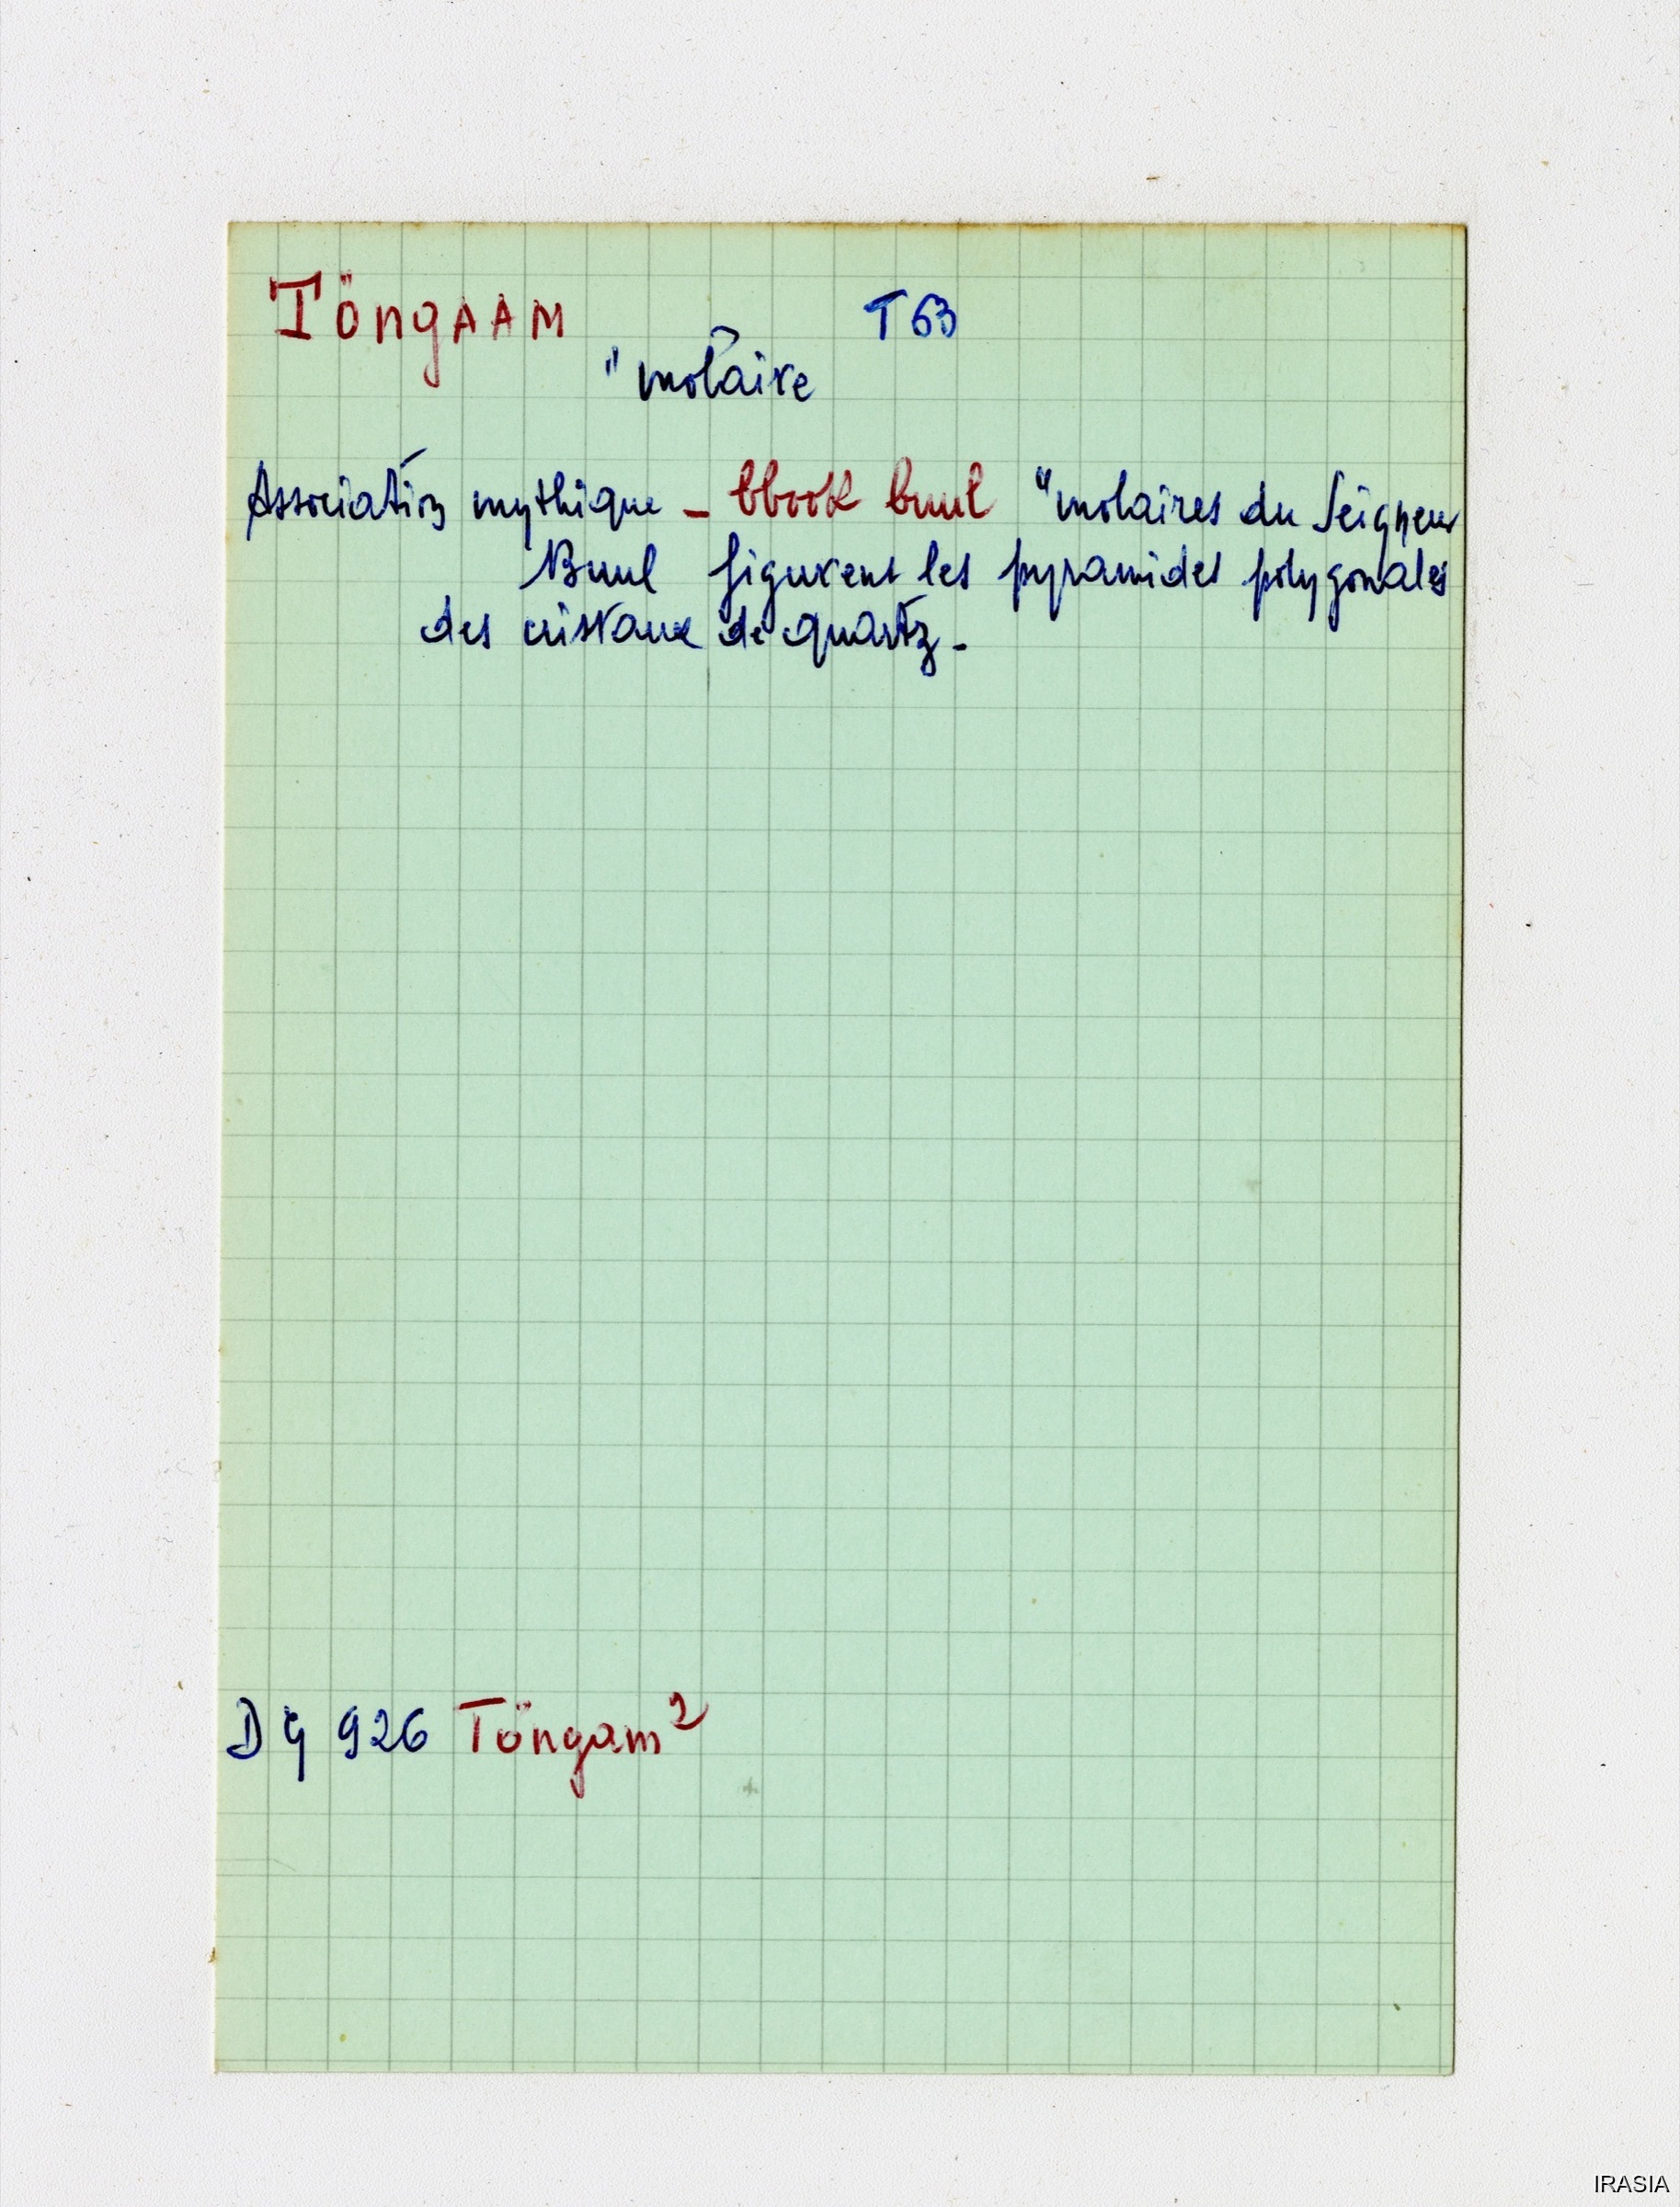 TöngAAM T63
" molaire
Association mythique - bbook buul "molaires du Seigneur
Buul figurent les pyramides polygonales
des cristaux de quartz -
DG 926 Töngam²
IRASIA